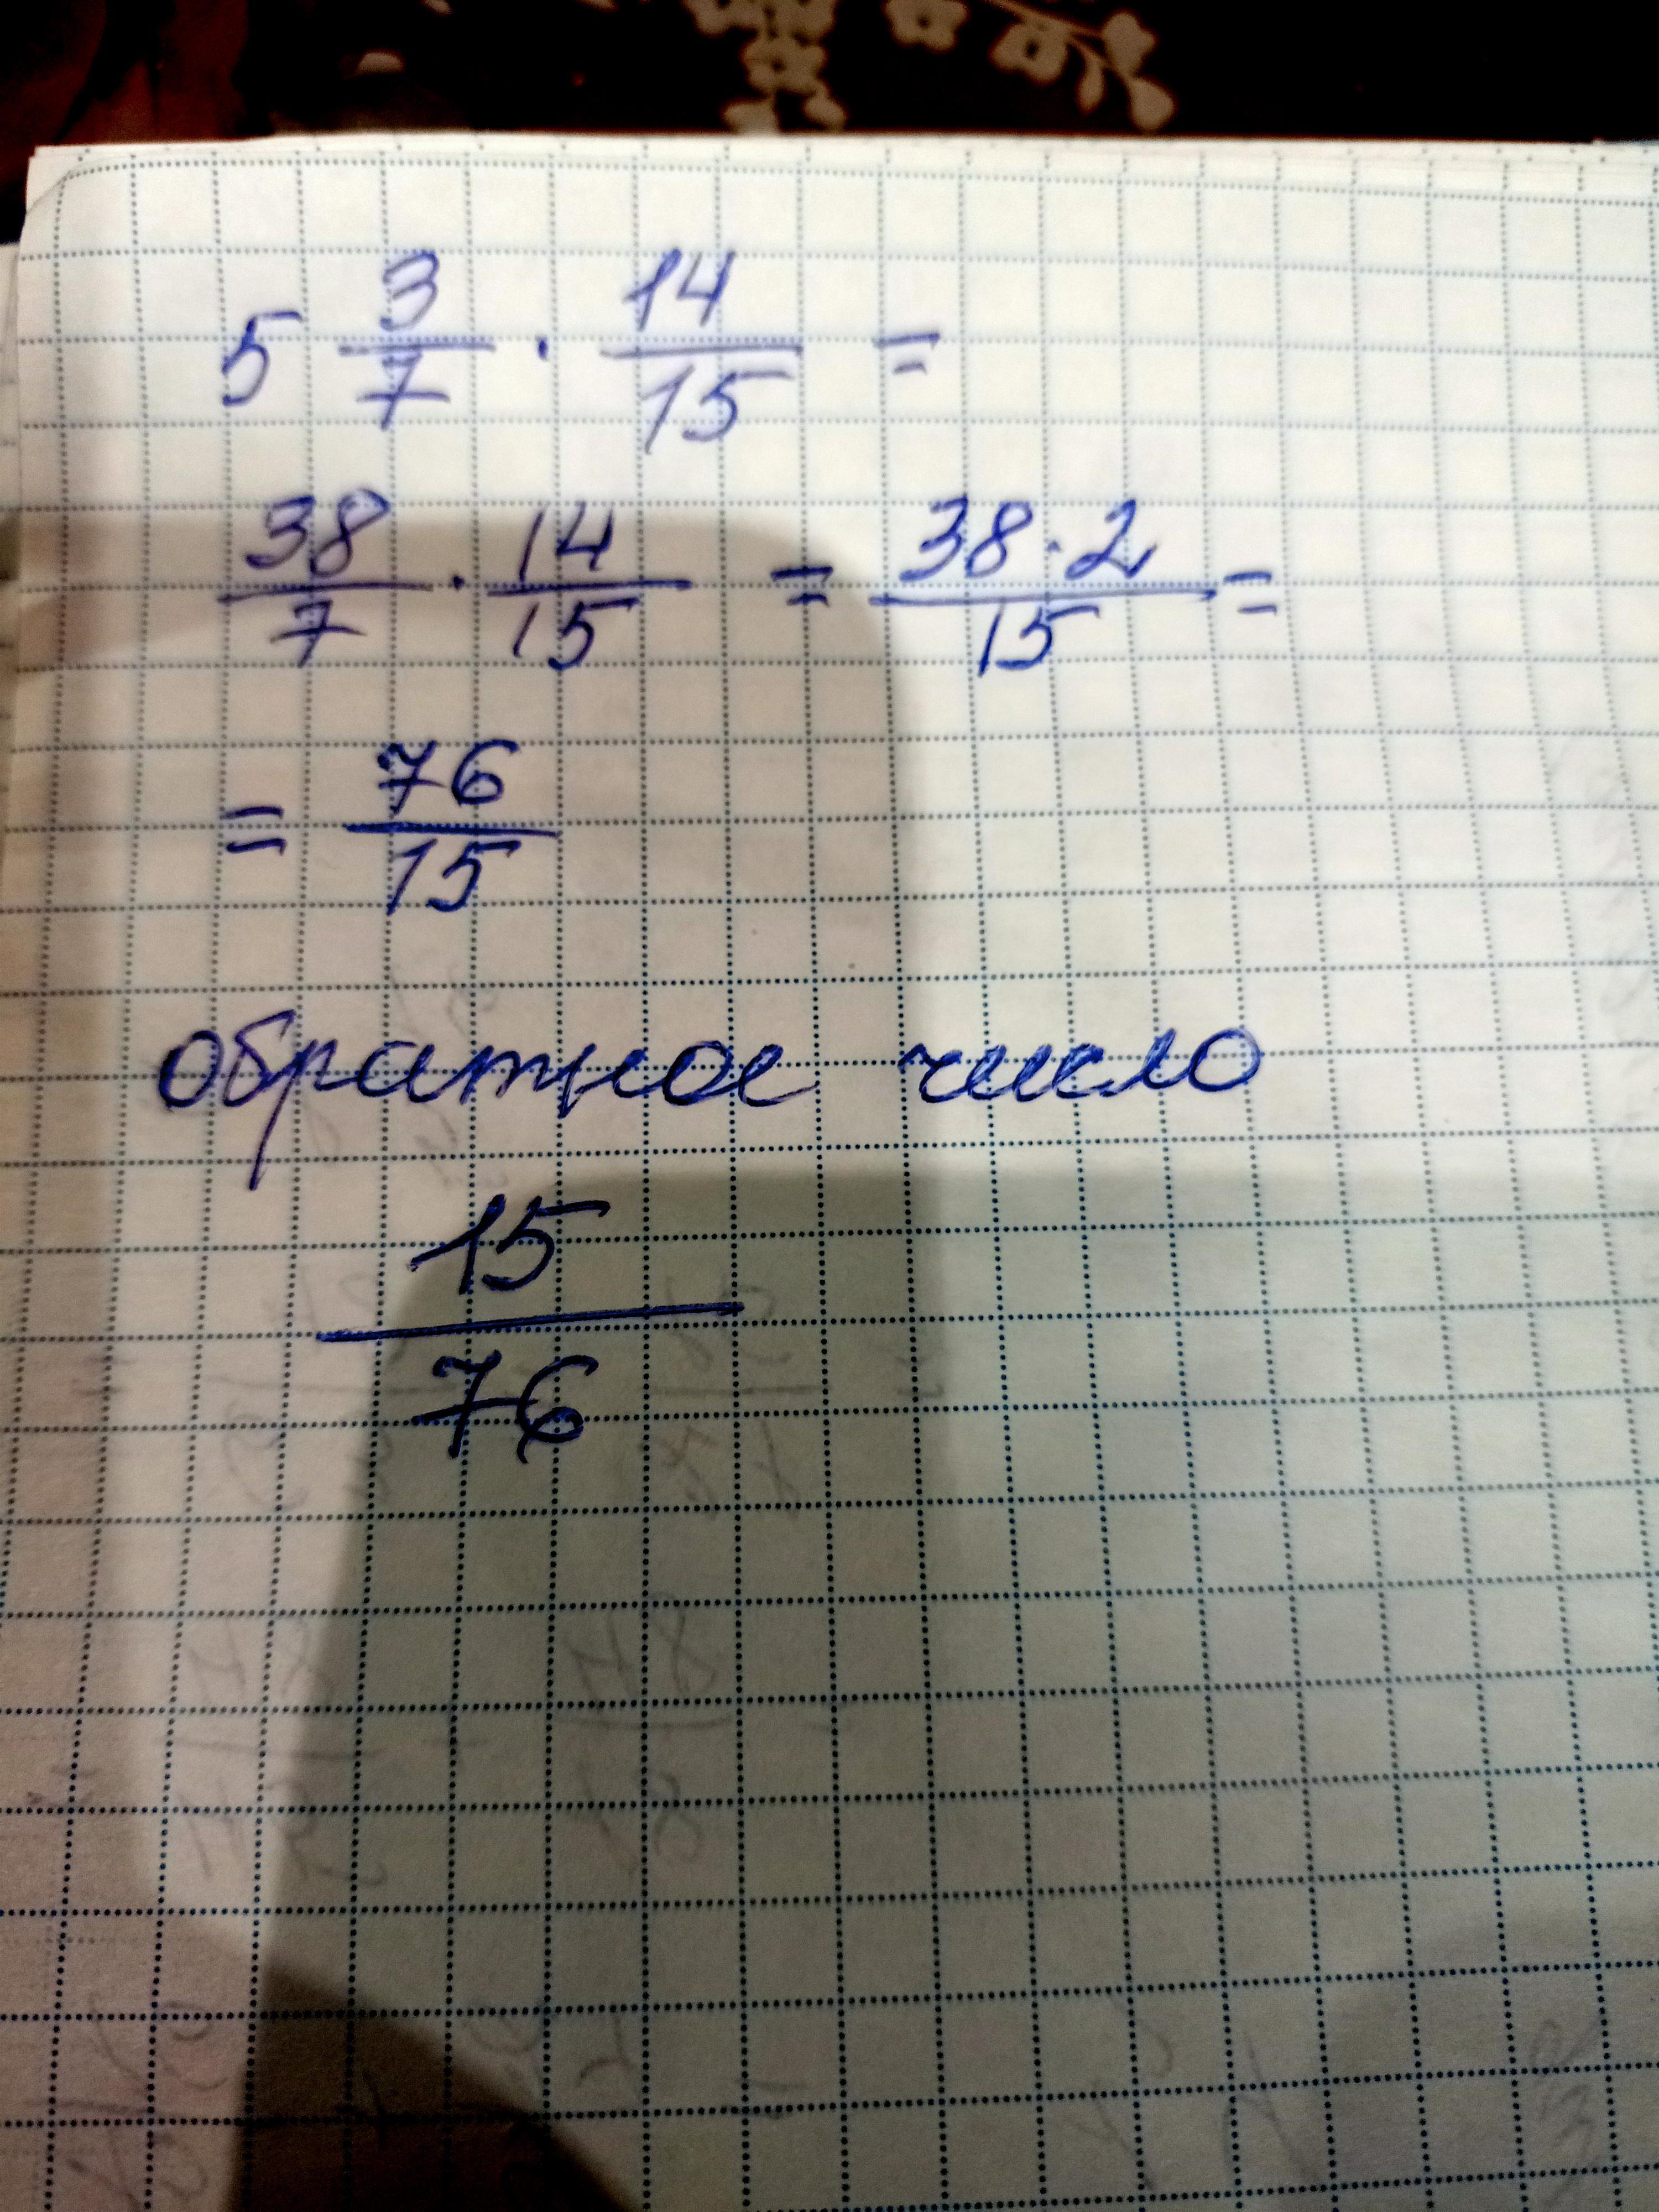 5 3/7 · 14/15 =
38/7 · 14/15 = 38·2/15 =
= 76/15
обратное число
15/76